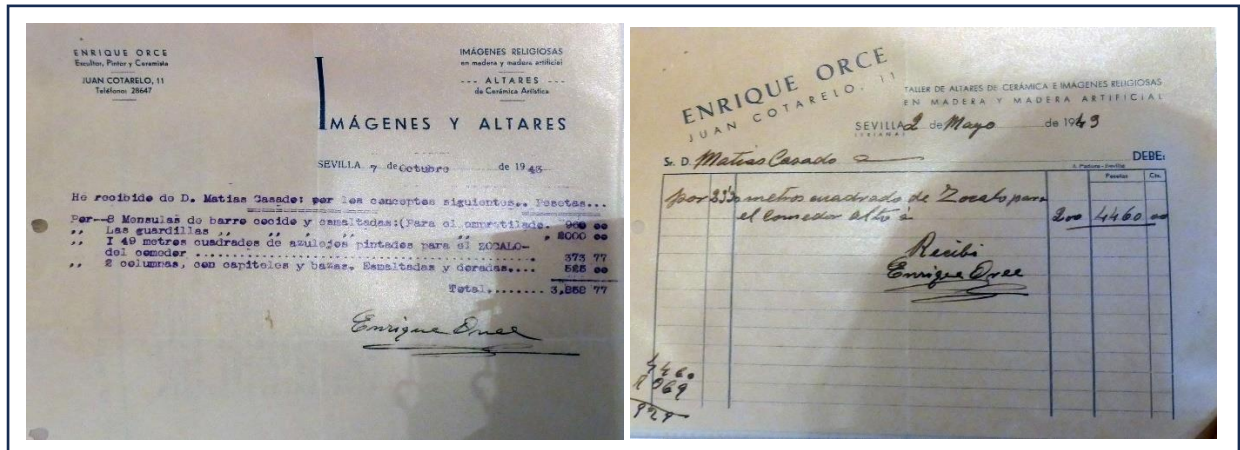 ENRIQUE ORCE
Escultor, Pintor y Ceramista
JUAN COTARELO, 11
Teléfono: 28647
IMÁGENES RELIGIOSAS
en madera y madera artificial
--- ALTARES ---
de Cerámica Artística
IMÁGENES Y ALTARES
SEVILLA 7 de Octubre de 1943
He recibido de D. Matias Casado: por los conceptos siguientes.. Pesetas...
Por--8 Mensulas de barro cocido y esmaltadas:(Para el empretilado. 960 00
,, Las guardillas ,, ,, ,, ,, , 2000 00
,, I 49 metros cuadrados de azulejos pintados para el ZOCALO-
del comedor ................ 373 77
,, 2 columnas, con capiteles y bazas. Esmaltadas y doradas.... 525 00
Total....... 3,858 77
Enrique Orce
ENRIQUE ORCE
JUAN COTARELO, 11
TALLER DE ALTARES DE CERÁMICA E IMÁGENES RELIGIOSAS
EN MADERA Y MADERA ARTIFICIAL
SEVILLA 2 de Mayo de 1943
Sr. D. Matias Casado
DEBE:
Pesetas Cts.
por metros cuadrado de Zocalo, para
el Comedor alto á 200 4460 00
Recibi
Enrique Orce
4460